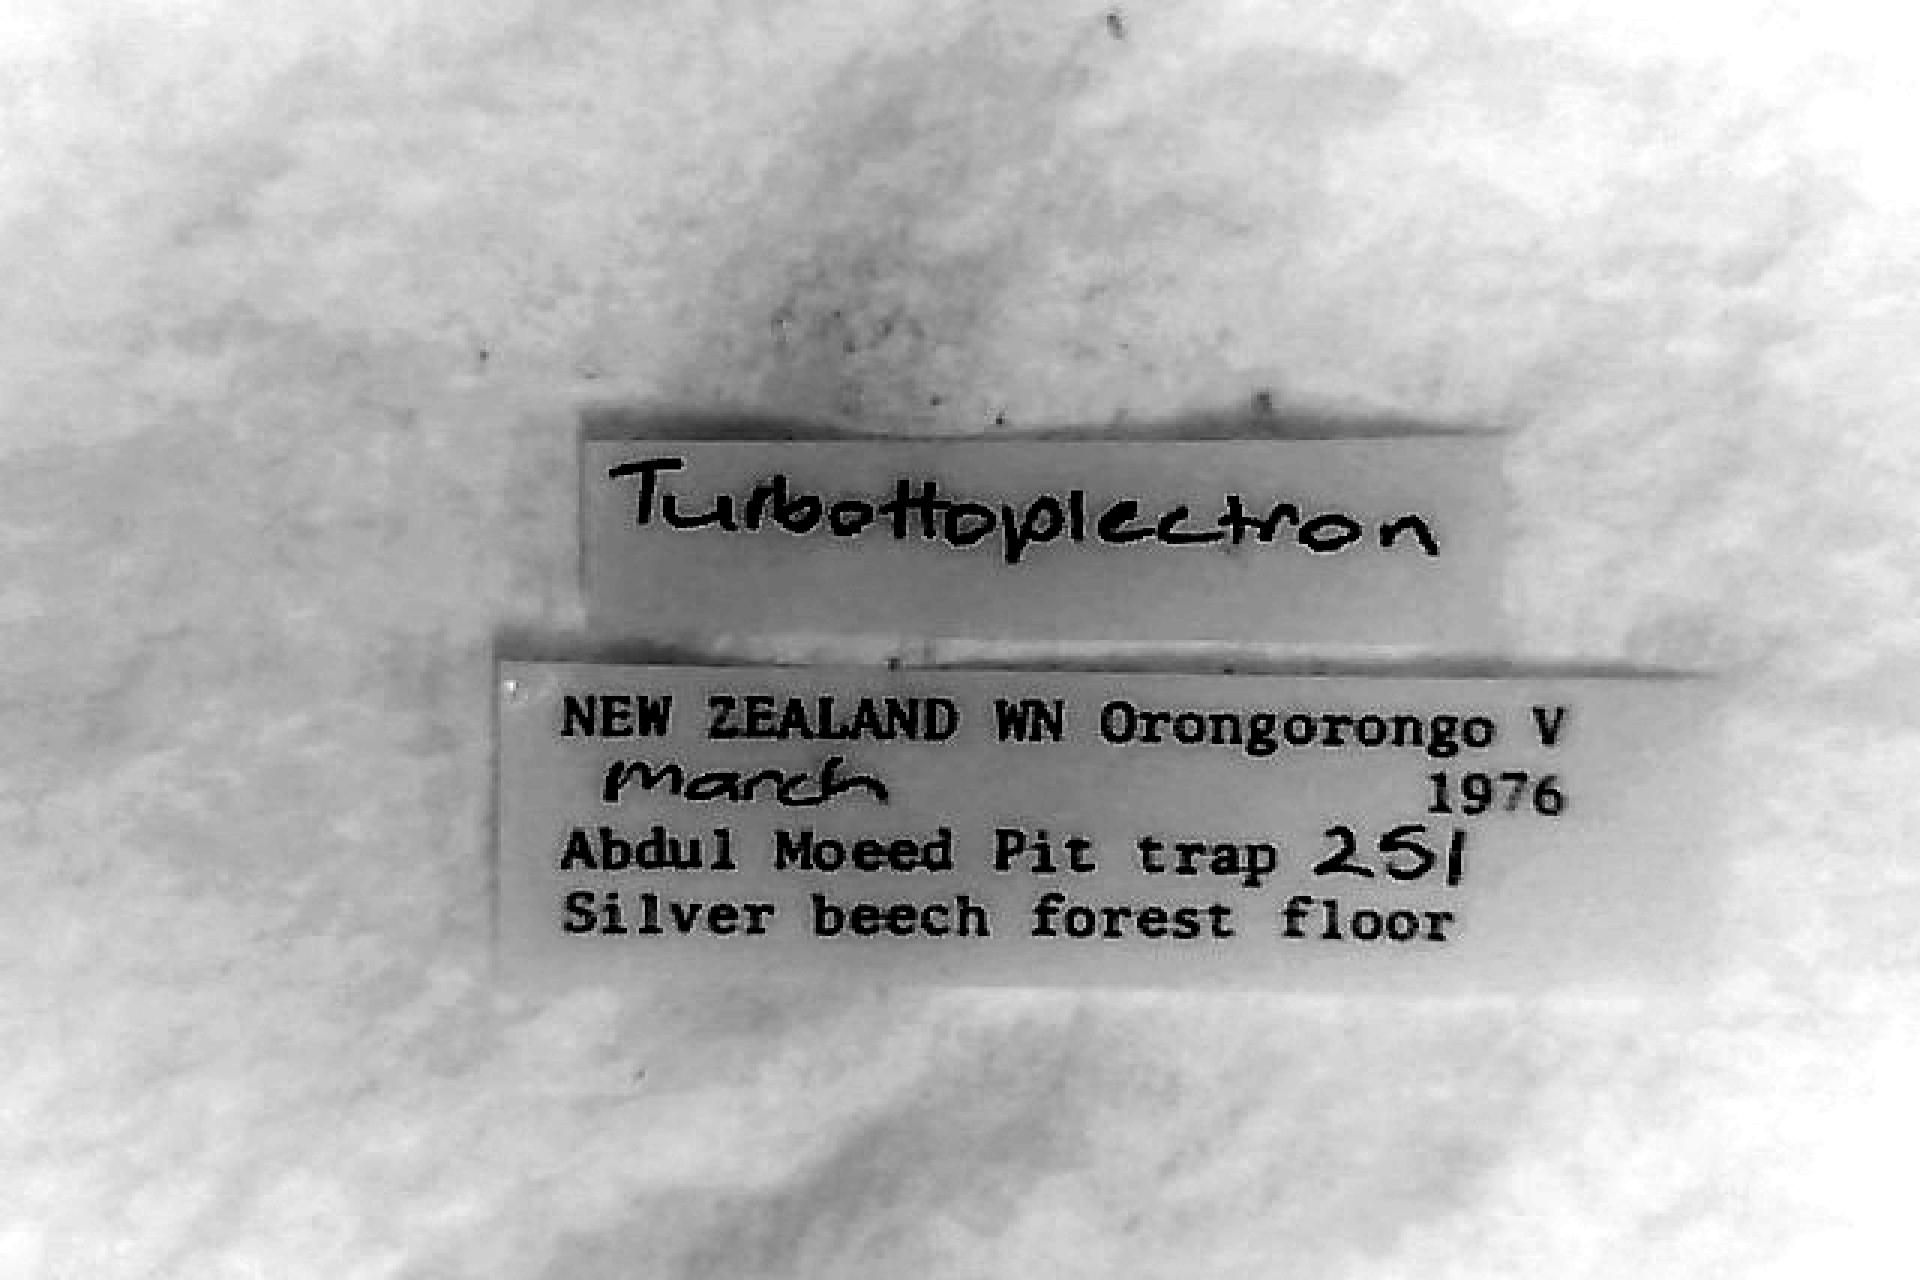 Turbottoplectron
NEW ZEALAND WN Orongorongo V
March 1976
Abdul Moeed Pit trap 251
Silver beech forest floor